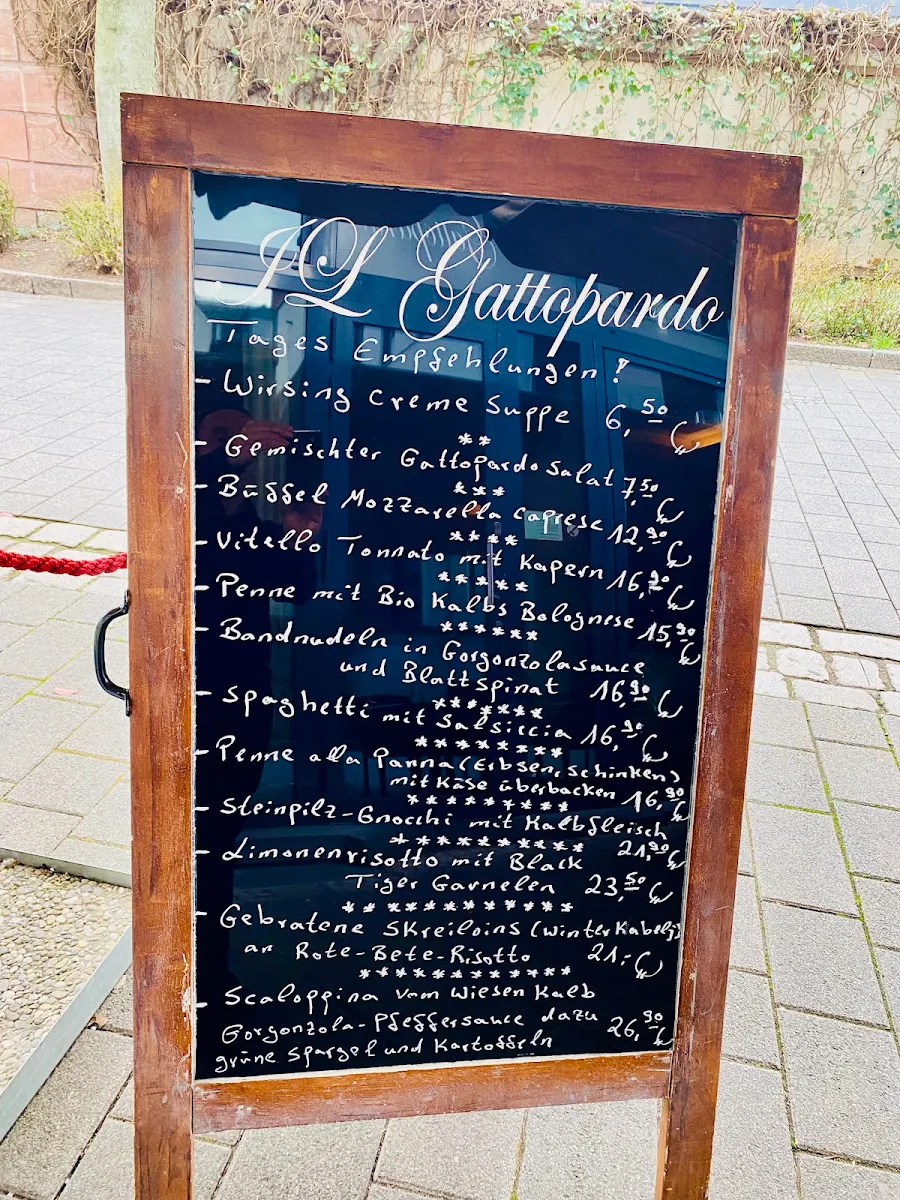 IL Gattopardo
Tages Empfehlungen!
- Wirsing Creme Suppe 6,50 €
**
- Gemischter Gattopardo Salat 7,50 €
***
- Büffel Mozzarella Caprese 12,90 €
****
- Vitello Tonnato mit Kapern 16,90 €
*****
- Penne mit Bio Kalbs Bolognese 15,90 €
******
- Bandnudeln in Gorgonzolasauce
und Blattspinat 16,90 €
*******
- Spaghetti mit Salsiccia 16,90 €
********
- Penne alla Panna (Erbsen, Schinken)
mit Käse überbacken 16,90 €
*********
- Steinpilz-Gnocchi mit Kalbfleisch
********** 21,90 €
- Limonenrisotto mit Black
Tiger Garnelen 23,50 €
***********
- Gebratene Skreiloins (Winter Kabelj)
an Rote-Bete-Risotto 21,- €
************
- Scaloppina vom Wiesen Kalb
Gorgonzola-Pfeffersauce dazu 26,90 €
grüne Spargel und Kartoffeln